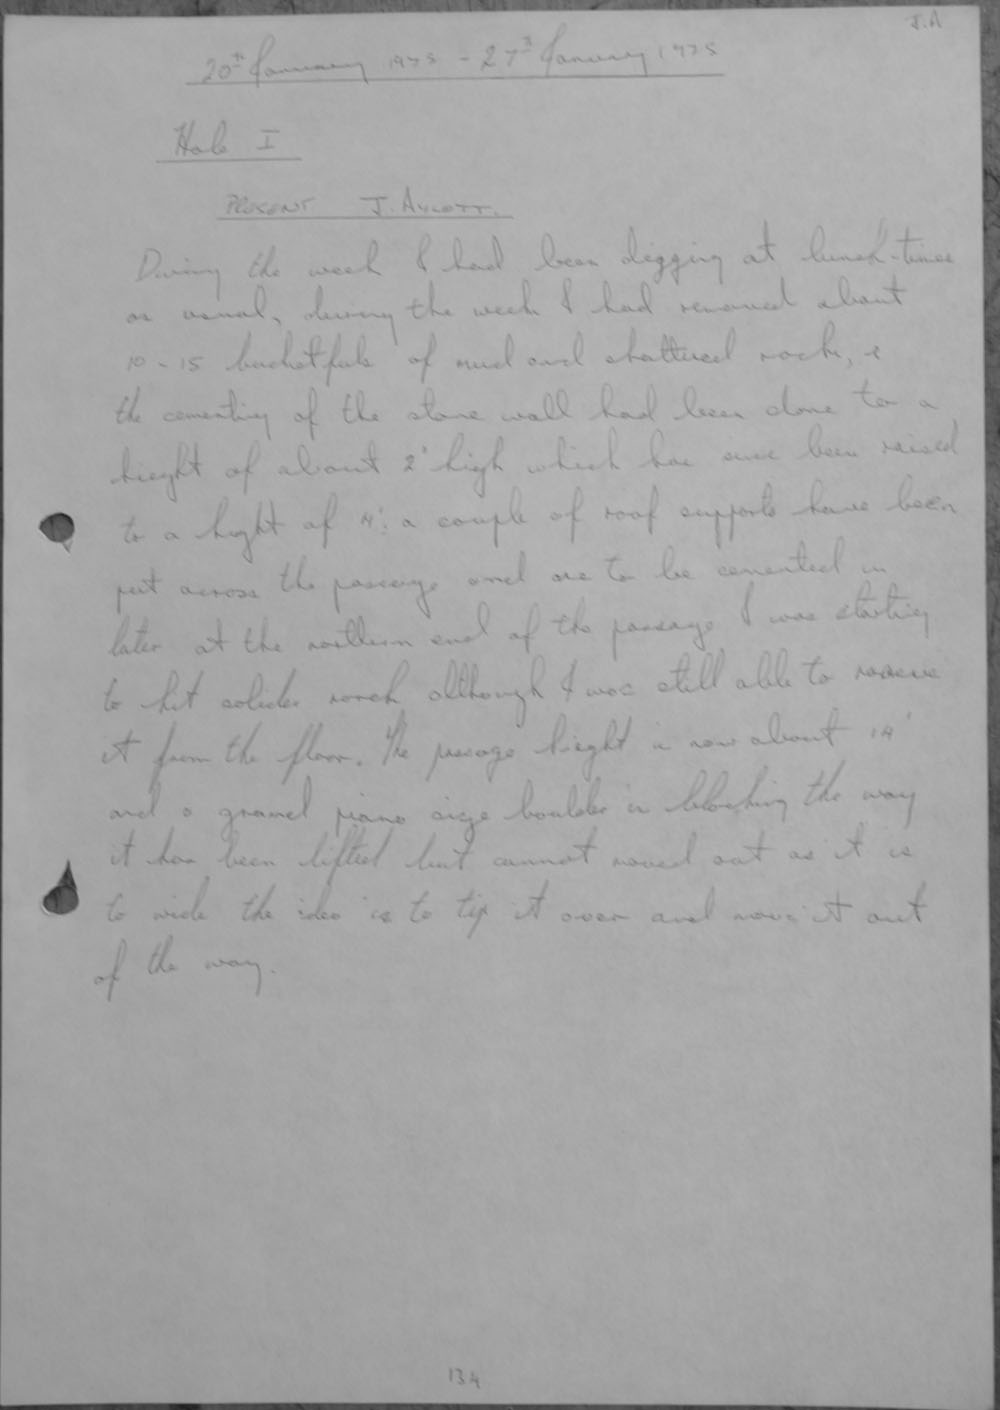 J.A
20th January 1975 - 27th January 1975
Hole I
PRESENT J. AYLOTT.
During the week I had been digging at lunch-times
as usual, during the week I had removed about
10 - 15 bucketfuls of mud and shattered rock, &
the cementing of the stone wall had been done to a
hieght of about 2' high which has since been raised
to a hight of 4'. a couple of roof supports have been
put across the passage and are to be cemented in
later at the northern end of the passage I was starting
to hit solider rock although I was still able to remove
it from the floor. The passage hieght is now about 14'
and a grand piano size boulder is blocking the way
it has been lifted but cannot moved out as it is
to wide the idea is to tip it over and move it out
of the way.
134